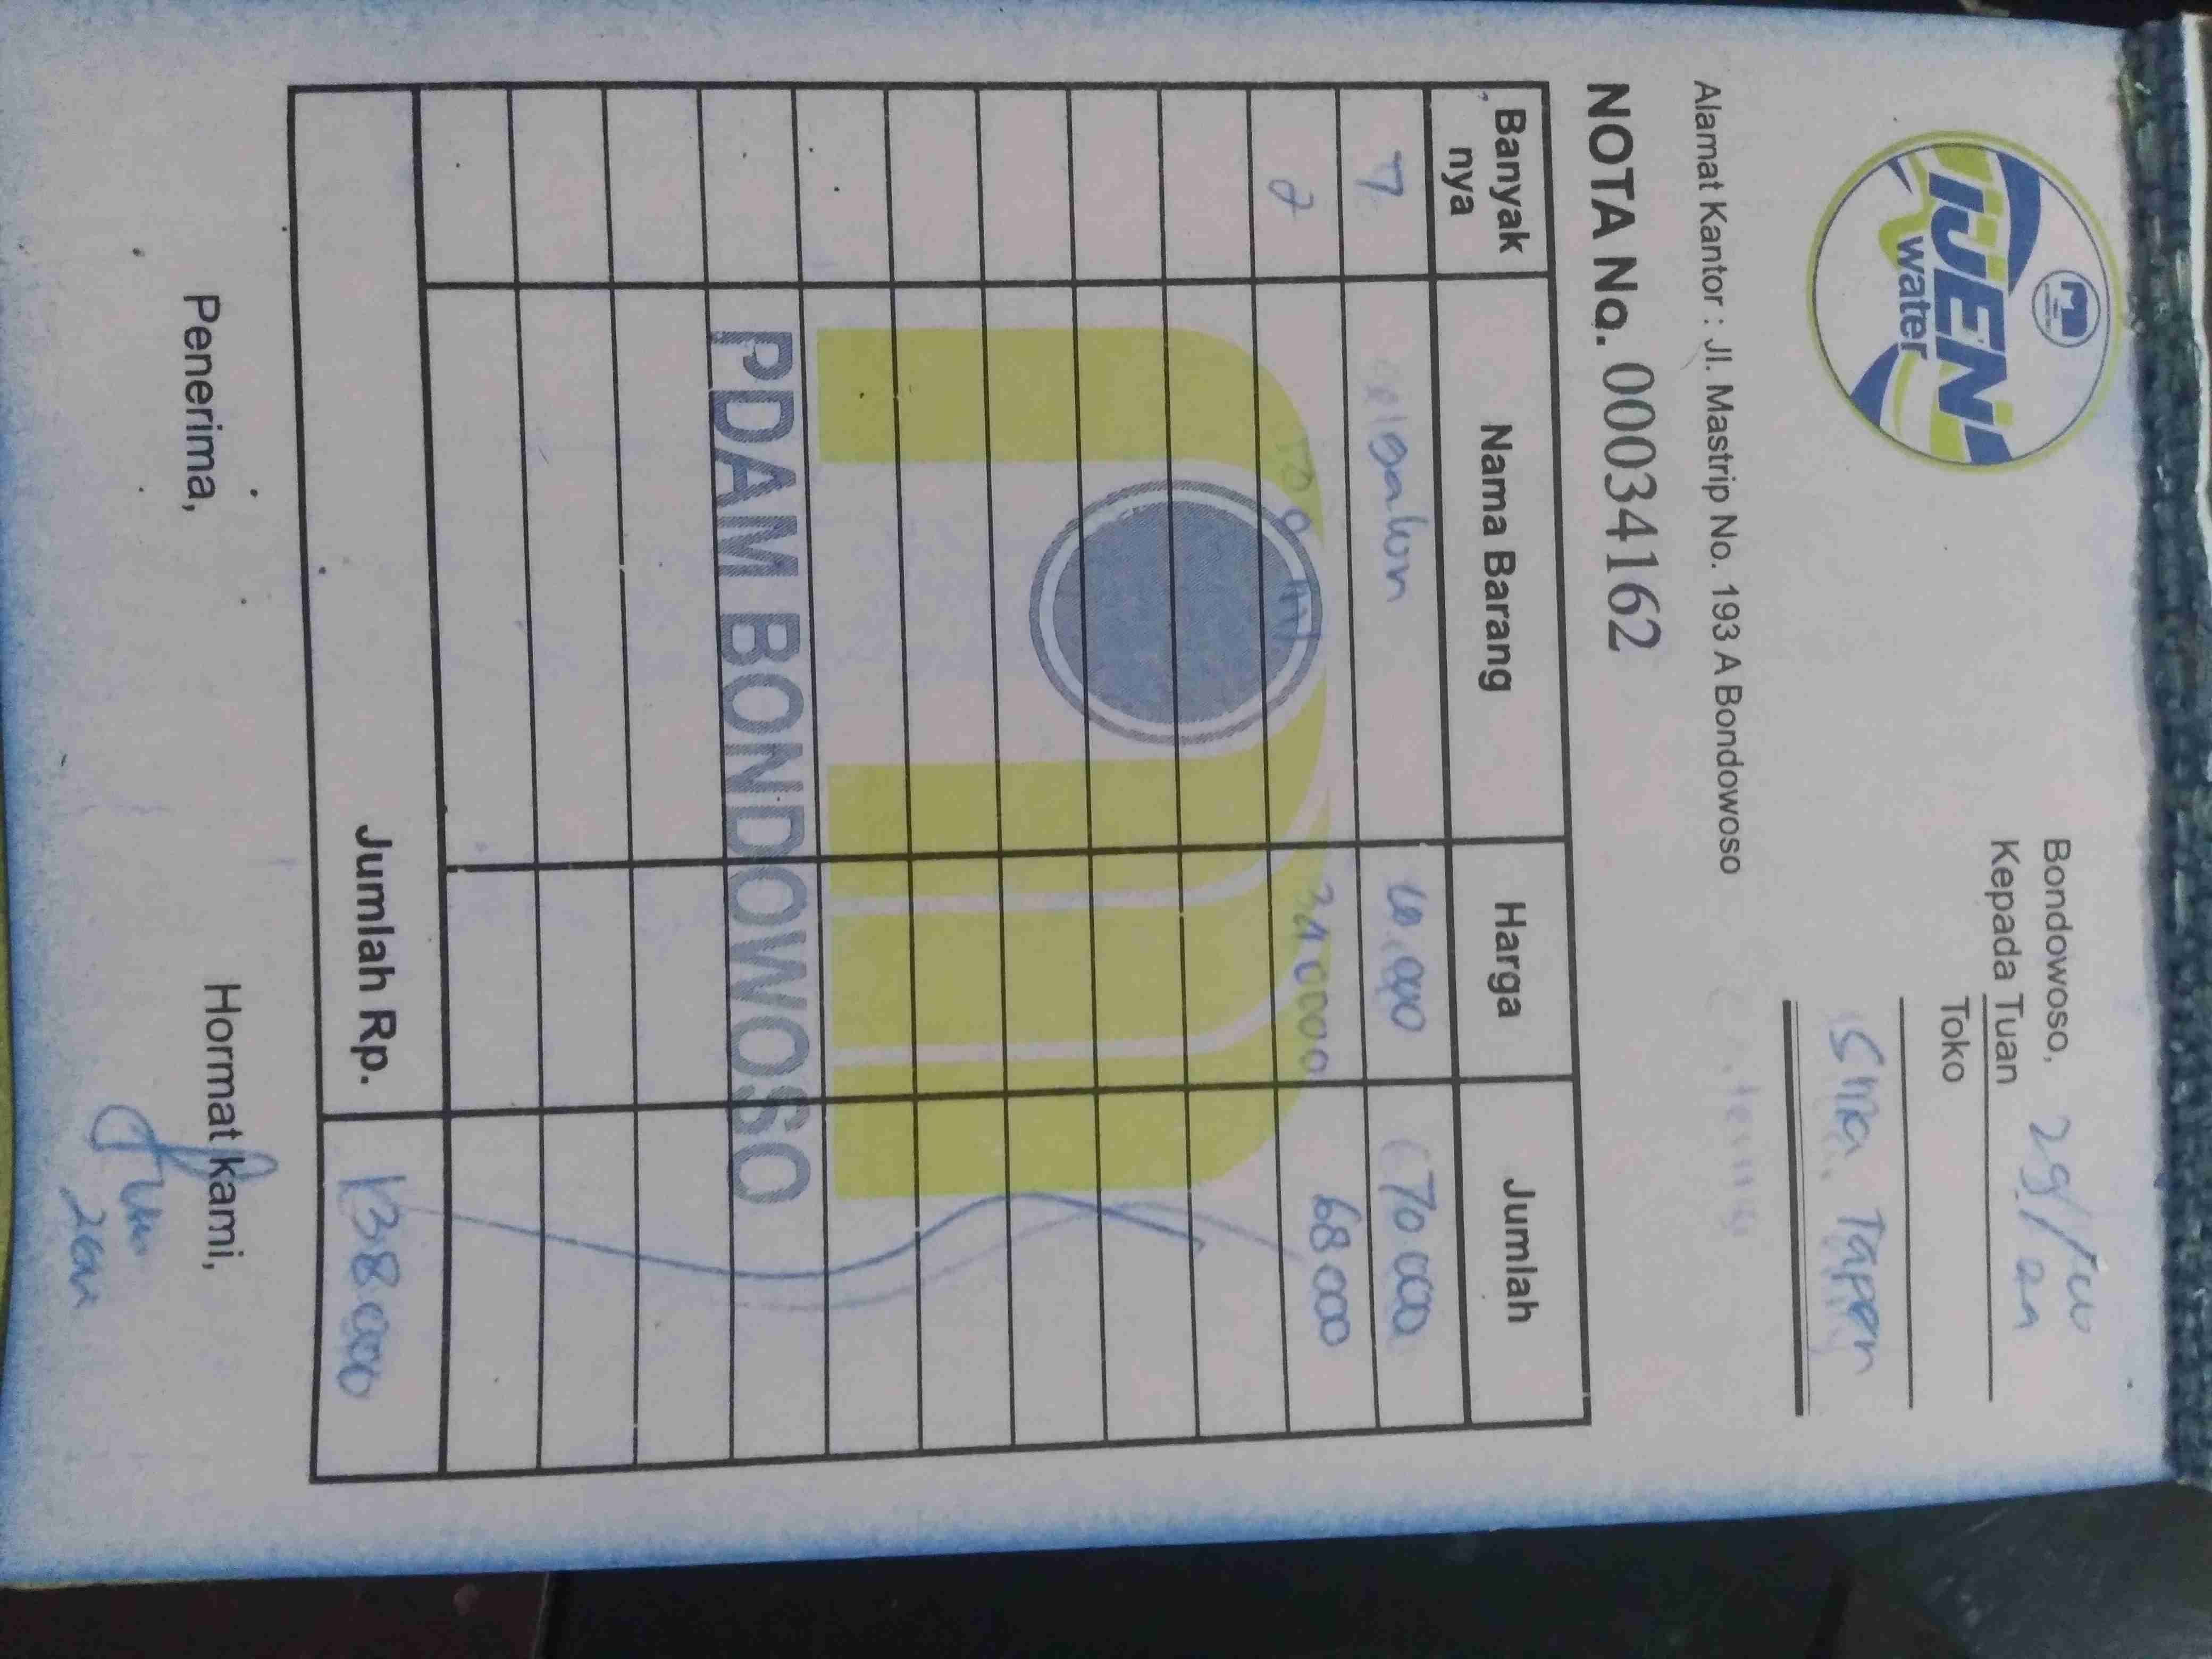 IJEN
water
Bondowoso, 29/
Kepada Tuan
Toko
Sma. Tapen
Alamat Kantor : Jl. Mastrip No. 193 A Bondowoso
NOTA No. 00034162
Banyak nya Nama Barang Harga Jumlah
7 galon 10.000 70 000
2 34 0000 68 000
PDAM BONDOWOSO
Jumlah Rp. 138 000
Penerima, Hormat kami,